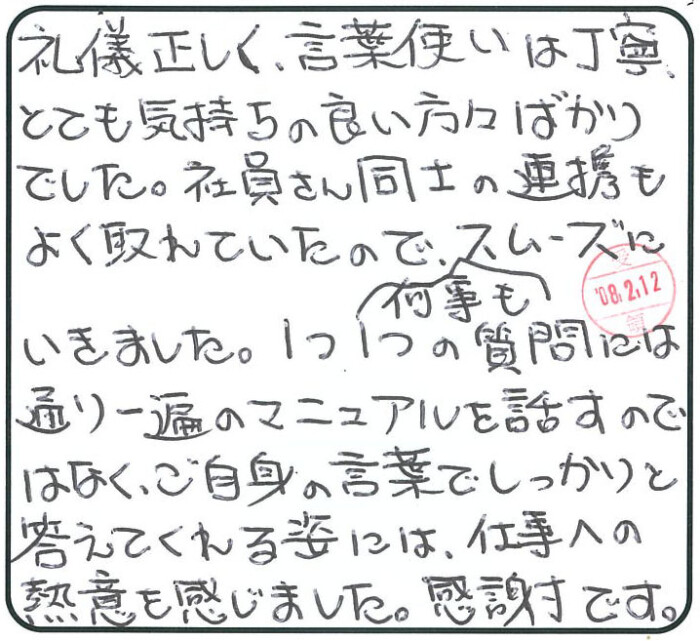 礼儀正しく、言葉使いは丁寧、
とても気持ちの良い方々ばかり
でした。社員さん同士の連携も
よく取れていたので、スムーズに
何事も
'08.2.12
いきました。1つ1つの質問には
通り一遍のマニュアルを話すので
はなく、ご自身の言葉でしっかりと
答えてくれる姿には、仕事への
熱意を感じました。感謝です。